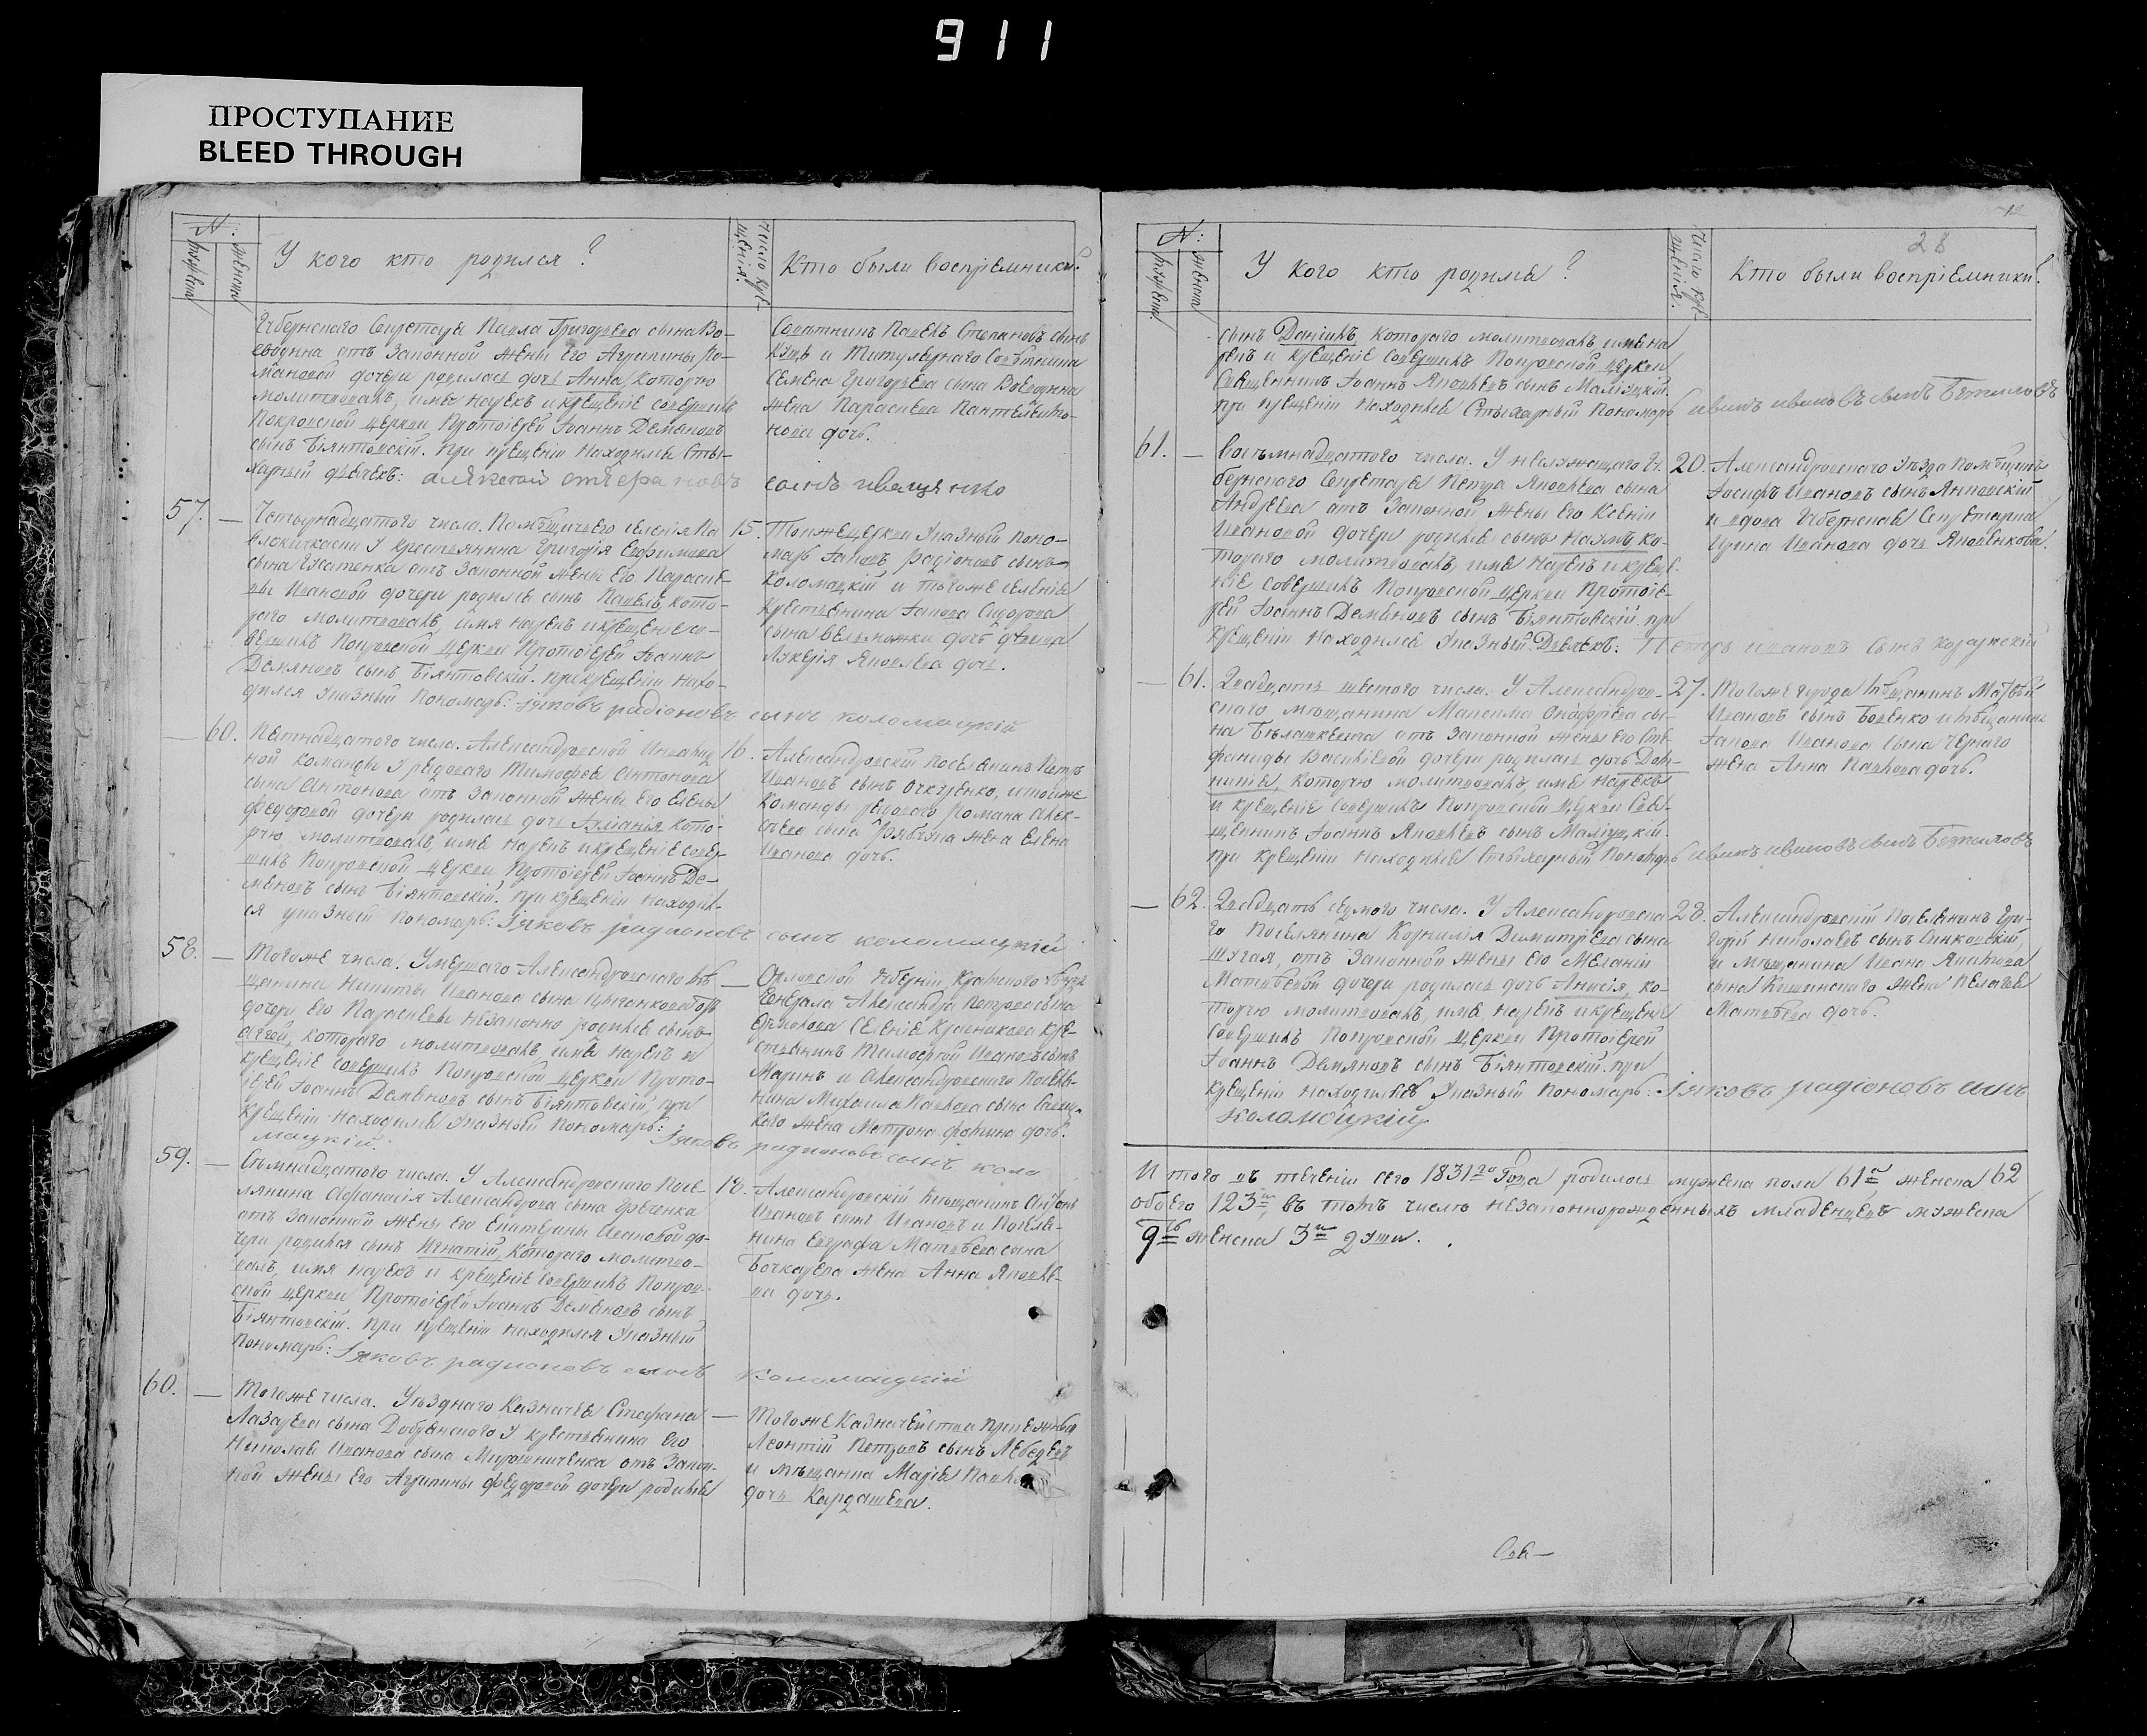 911
ПРОСТУПАНИЕ
BLEED THROUGH
N:
мужеска
женска
У кого кто родился?
Число кре-
щенія.
Кто были воспріемники?
Губернскаго Секретаря Павла Григорьева сына Во-
еводина отъ Законной жены Его Агрипины Ро-
мановой дочери родилась дочь Анна, Которую
молитвовалъ, имя нарекъ и крещеніе совершилъ
Покровской церкви Протоіерей Іоаннъ Демяновъ
сынъ Біянтовскій. При крещеніи Находился Сти-
харный дьячекъ:
Совѣтникъ Павелъ Степановъ сынъ
и Титулярнаго Совѣтника
Семена Григорьева сына Воеводина
жена Параскева Пантелеймо-
нова дочь.
57. —
Четырнадцатого числа. Помѣщичьего селенія
У крестьянина Григорія Евфимова
сына Усатенка отъ Законной жены Его Параске-
вы Ивановой дочери родился сынъ Павелъ, кото-
раго молитвовалъ, имя нарекъ и крещеніе со-
вершилъ Покровской церкви Протоіерей Іоаннъ
Демяновъ сынъ Біянтовскій. При крещеніи нахо-
дился Указный Пономарь: Іяковъ радіоновъ сынъ коломацкій
15.
Тоя же церкви Указный Поно-
марь Іаковъ Радіоновъ сынъ
Коломацкій и тогоже селенія
Крестьянина Іакова Сидорова
сына Вельможки дочь девица
Лукерія Яковлева дочь.
— 60.
Пятнадцатого числа. Александровской Инвалид-
ной Команды У рядоваго Тимофея Антонова
сына Антонова отъ Законной жены Его Елены
Федоровой дочери родилась дочь Іуліанія, кото-
рую молитвовалъ, имя нарекъ и крещеніе совер-
шилъ Покровской церкви Протоіерей Іоаннъ Де-
мяновъ сынъ Біянтовскій. При крещеніи находил-
ся указный Пономарь: Іяковъ радионовъ сынъ коломацкій
16.
Александровскій Поселянинъ Петръ
Ивановъ сынъ Очкуренко, и тоя же
Команды рядоваго Романа Алек-
сѣева сына жена Елена
Иванова дочь.
58. —
Тогоже числа. Умершаго Александровскаго мѣ-
щанина Никиты Иванова сына
дочери Его Параскевы незаконно родился сынъ
котораго молитвовалъ, имя нарекъ и
крещеніе совершилъ Покровской церкви Прото-
іерей Іоаннъ Демяновъ сынъ Біянтовскій, при
крещеніи находился Указный Пономарь:
Іяковъ радионовъ сынъ коло
мацкій.
—
Орловской Губерніи Кромского уѣзда
Генерала Александра Петрова сына
Селенія кре-
стьянинъ Тимофей Ивановъ сынъ
Маринъ и Александровскаго Поселя-
нина Михаила Павлова сына
жена Матрона Фомина дочь.
59. —
Семнадцатого числа. У Александровскаго Посе-
лянина Афанасія Александрова сына
отъ Законной жены Его Екатерины Ивановой до-
чери родился сынъ Игнатій, Котораго молитво-
валъ, имя нарекъ и крещеніе совершилъ Покров-
ской церкви Протоіерей Іоаннъ Демяновъ сынъ
Біянтовскій. При крещеніи находился Указный
Пономарь: Іяковъ радионовъ сынъ коломацкій
18.
Александровскій мѣщанинъ Антонъ
Ивановъ сынъ Ивановъ и Поселя-
нина Евграфа Матвѣева сына
Бочкарева жена Анна Яковле-
ва дочь.
60. —
Тогоже числа. Уѣзднаго Казначея Стефана
Лазарева сына Добрянского У крестьянина Его
Николая Иванова сына Мирошниченка отъ Закон-
ной жены Его Агрипины Федоровой дочери родился
—
Тогоже Казначейства Присяжный
Леонтій Петровъ сынъ Лебедевъ
и мѣщанка Марія
дочь Кардашева.
28
N:
мужеска
женска
У кого кто родился?
Число кре-
щенія.
Кто были воспріемники?
сынъ Даніилъ, котораго молитвовалъ, имя на
рекъ и крещеніе совершилъ Покровской церкви
Священникъ Іоаннъ Яковлевъ сынъ
При крещеніи находился Стихарный Пономарь иванъ ивановъ сынъ
61. —
Восемнадцатого числа. У неслужащаго Гу-
бернскаго Секретаря Петра Яковлева сына
Андреева отъ Законной жены Его Ксеніи
Ивановой дочери родился сынъ Наумъ, ко-
тораго молитвовалъ, имя нарекъ и креще-
ніе совершилъ Покровской церкви Протоіе-
рей Іоаннъ Демяновъ сынъ Біянтовскій. при
крещеніи находился Указный Дьячекъ: Петръ ивановъ сынъ
20.
Александровскаго Уѣзда Помѣщикъ
Іосифъ Ивановъ сынъ Янковскій
и вдова Губернская Секретарша
Ирина Иванова дочь Яковенкова.
— 61.
Двадцать шестого числа. У Александров-
скаго мѣщанина Максима Онофріева сы-
на Бѣлашкевича отъ Законной жены Его Сте-
фаниды Васильевой дочери родилась дочь Дом-
никія, которую молитвовалъ, имя нарекъ
и крещеніе совершилъ Покровской церкви Свя-
щенникъ Іоаннъ Яковлевъ сынъ
при крещеніи находился Стихарный Пономарь иванъ ивановъ сынъ
27.
Тогоже города мѣщанинъ Матвѣй
Ивановъ сынъ Боженко и мѣщанина
Іакова Иванова сына Чернаго
жена Анна Павлова дочь.
— 62.
Двадцать седмого числа. У Александровска
го Поселянина Корнилія Димитріева сына
Шугая, отъ Законной жены Его Меланіи
Матвѣевой дочери родилась дочь Анисія, ко-
торую молитвовалъ, имя нарекъ и крещеніе
совершилъ Покровской церкви Протоіерей
Іоаннъ Демяновъ сынъ Біянтовскій. при
крещеніи находился Указный Пономарь: Іяковъ радіоновъ сынъ
коломацкій
28.
Александровскій Поселянинъ Гри-
горій Николаевъ сынъ Синковскій,
и мѣщанина Ивана Якимова
сына жена Пелагея
Матвѣева дочь.
Итого въ теченіи сего 1831го Года родилось мужеска пола 61ъ женска 62
обоего 123и, въ томъ числѣ незаконнорожденныхъ младенцевъ мужеска
9ть женска 3и души.